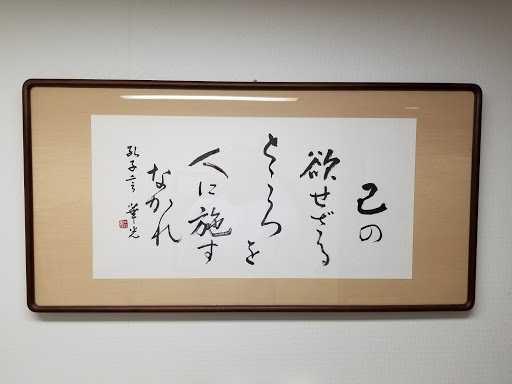 己の
欲せざる
ところを
人に施す
なかれ
孔子言 華光